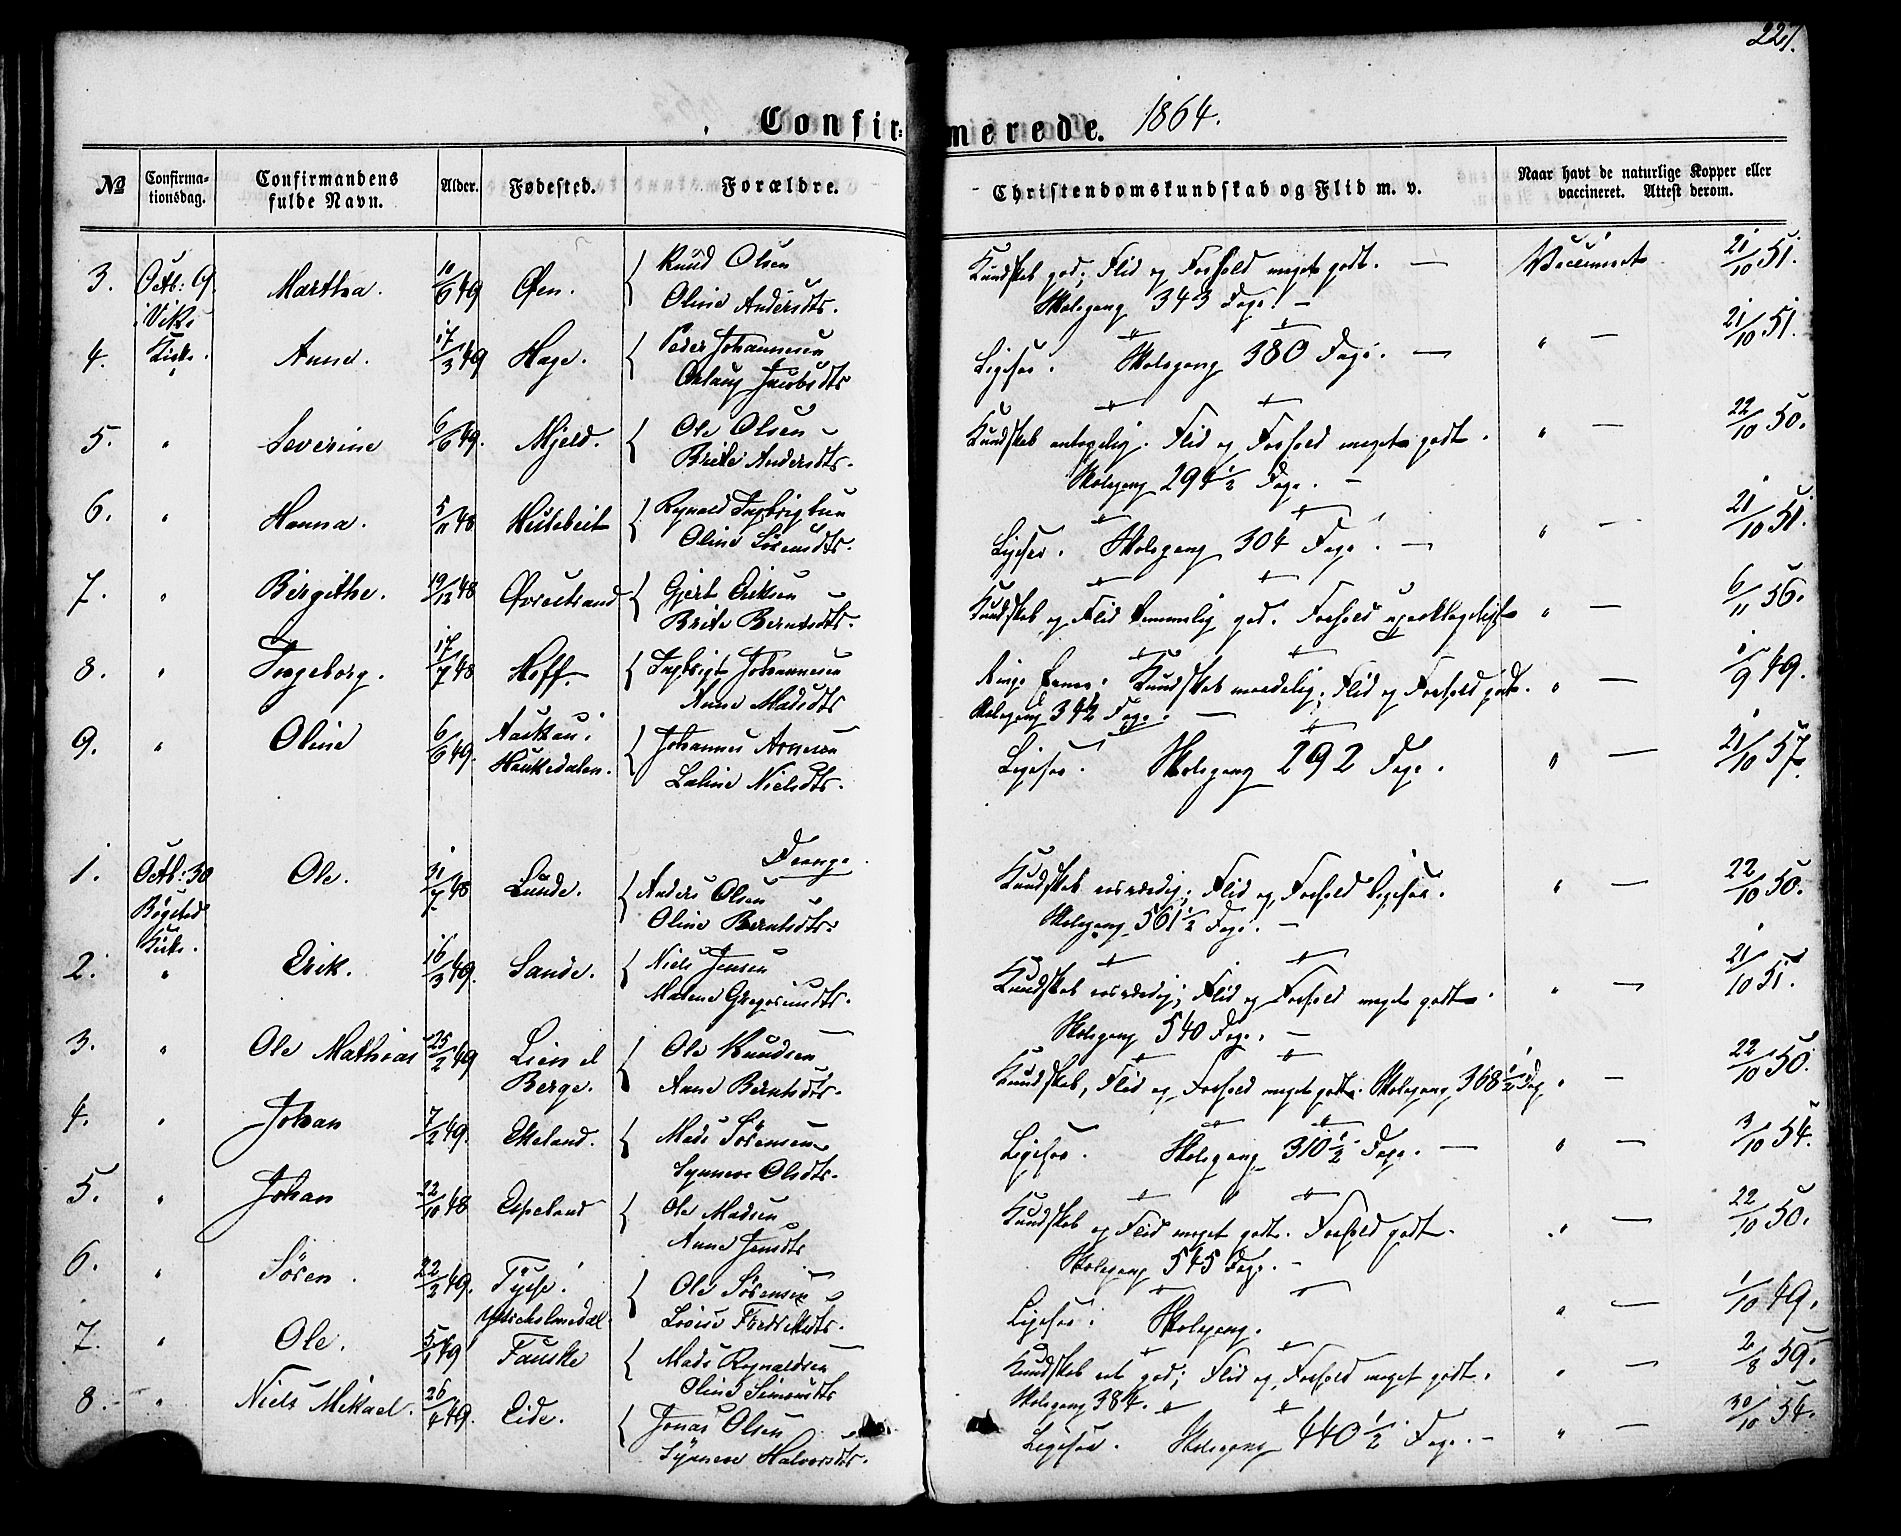 227.
Confirmerede. 1864.
No
Confirmationsdag.
Confirmandens fulde Navn.
Alder.
Fødested.
Forældre.
Christendomskundskab og Flid m. v.
Naar havt de naturlige Kopper eller vaccineret. Attest derom.
3. Octb: 9. i Viks Kirke. Martha. 10/9 49 Øen. Knud Olsen Oline Andersdtr. Kundskab god; Flid og Forhold meget godt. — Vaccineret 21/10 51.
Skolegang 343 Dage. —
4. " Anne. 17/3 49 Hage. Peder Johannesen Jacobsdtr Ligesaa. Skolegang 380 Dage. — " — 21/10 51.
5. " Severine 6/6 49. Mjeld. Ole Olsen Brite Andersdtr. Kundskab antagelig. Flid og Forhold meget godt. " — 22/10 50.
Skolegang 294 1/2 Dage. —
6. " Hanna. 5/11 48 Hestebeit Rognald Ingbrigtsen Oline Sørensdtr. Ligesaa. Skolegang 304 Dage. — " — 21/10 51.
7. " Birgithe. 19/12 48 Øvrestrand Gjert Eriksen Brite Berntsdtr. Kundskab og Flid temmelig god. Forhold upaaklageligt " — 6/11 56.
8. " Ingeborg. 17/7 48 Hoff. Ingbrigt Johannesen Anne Madsdtr Ringe Evner. Kundskab maadelig; Flid og Forhold godt. " — 1/9 49.
Skolegang 342 Dage. —
9. " Oline 6/9 49. Haukedalen. Johannes Arnesen Laline Nielsdtr. Ligesaa. Skolegang 292 Dage. " — 21/10 57.
Drenge.
1. Octb: 30 Bygstad Kirke. Ole. 31/7 48 Lunde. Anders Olsen Oline Berntsdtr. Kundskab roesværdig; Flid og Forhold ligesaa. " — 22/10 50.
Skolegang 561 1/2 Dage. —
2. " Erik. 16/3 49. Sande. Niels Jensen Malene Gregoriusdtr. Kundskab roesværdig; Flid og Forhold meget godt. " — 21/10 51.
Skolegang 540 Dage. —
3. " Ole Mathias 25/2 49 Lien Berge. Ole Knudsen Anne Berntsdtr. Kundskab, Flid og Forhold meget godt. Skolegang 368 1/2 Dag " — 22/10 50.
4. " Johan 7/2 49. Ekeland. Mads Sørensen Synneve Olsdtr. Ligesaa. Skolegang 310 1/2 Dage. — " — 3/10 54.
5. " Johan 22/10 48 Espeland Ole Madsen Anne Jensdtr Kundskab og Flid meget godt. Forhold godt. " — 22/10 50.
Skolegang 545 Dage. —
6. " Søren. 22/2 49. Ytreholmedal. Ole Sørensen Lovise Fredriksdtr. Ligesaa. Skolegang. " — 1/10 49.
7. " Ole. 5/1 49 Fauske Mads Rognaldsen Oline Simonsdtr Kundskab ret god; Flid og Forhold meget godt. " — 2/8 59.
Skolegang 384.
8. " Niels Mikael. 26/4 49. Eide. Jonas Olsen Synneve Halvorsdtr. Ligesaa. Skolegang 440 1/2 Dage. — " — 30/10 54.